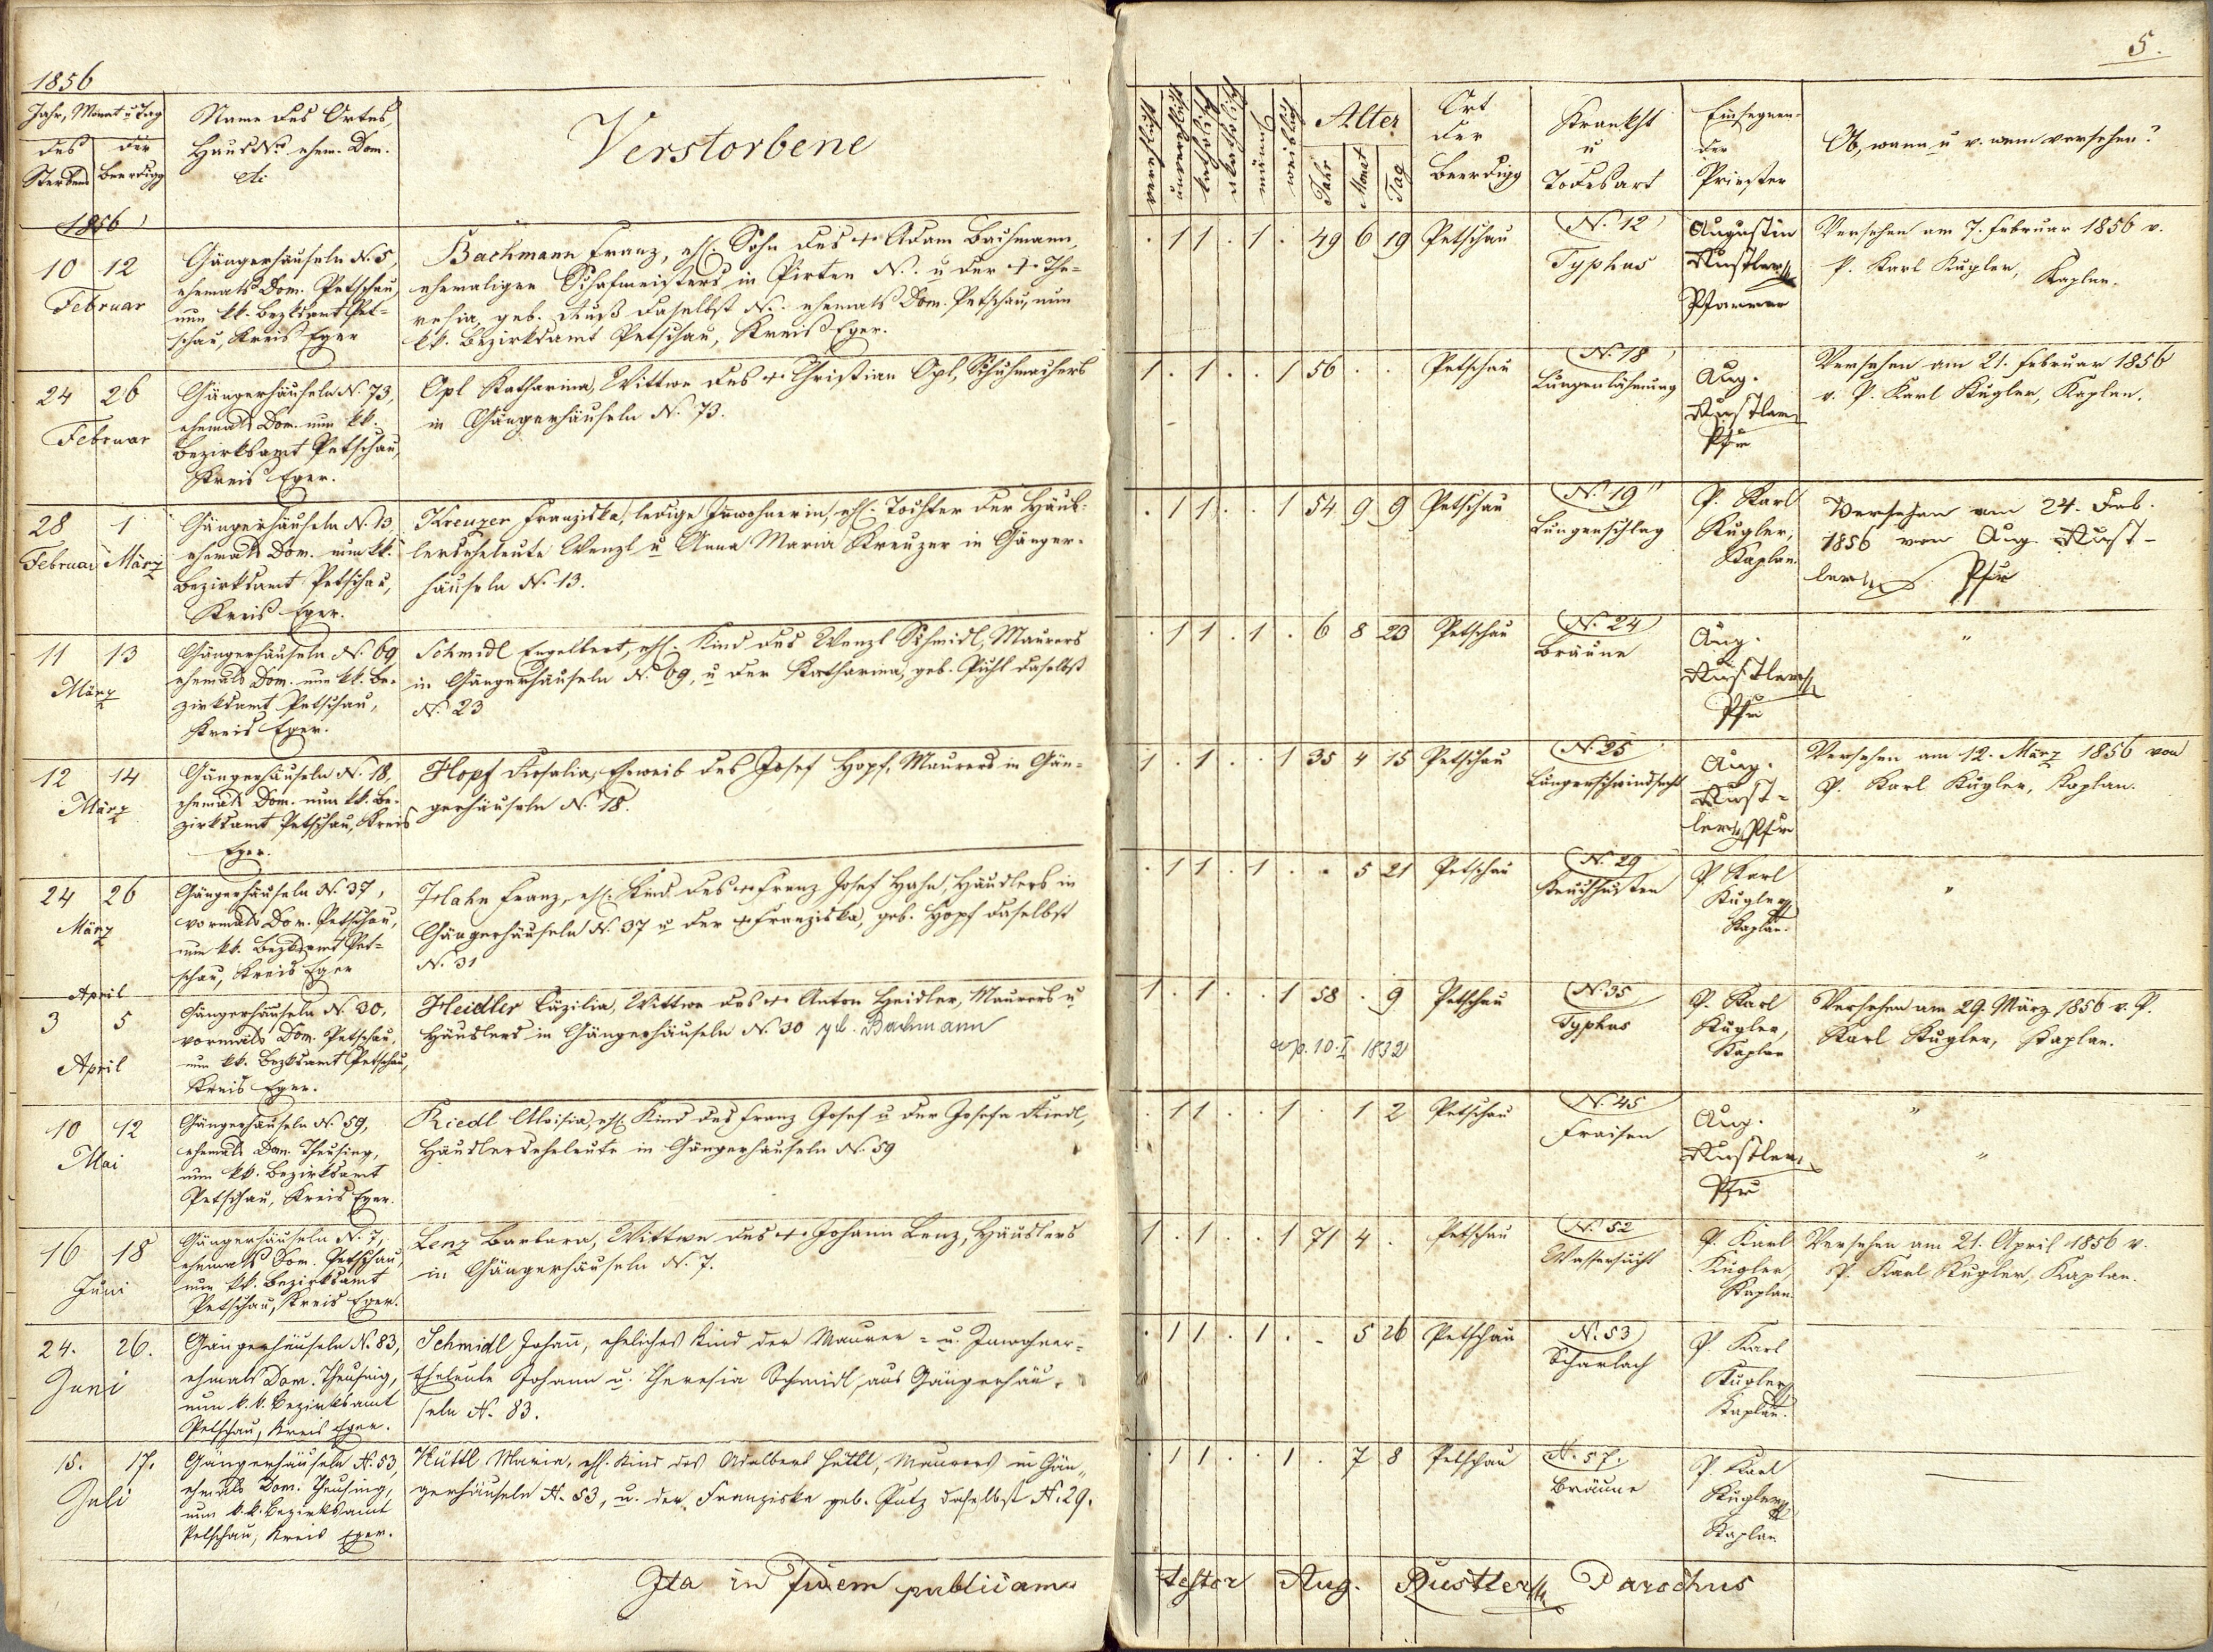 1856
Jahr, Monat u Tag
des Sterbens
der Beerdigg
Name des Ortes,
Haus No ehem. Dom.
etc
Verstorbene
1856
10 12
Februar
Gängerhäuseln N. 5,
ehemals Dom. Petschau,
nun kk. Bezksamt Pet=
schau, Kreis Eger
Bachmann Franz, ehl. Sohn des + Adam Bachmann,
ehemaligen Schafmeisters in Pirten N. u der + The=
resia, geb. daselbst N. ehemals Dom. Petschau, nun
kk. Bezirksamt Petschau, Kreis Eger.
24 26
Februar
Gängerhäuseln N. 73,
ehemals Dom. nun kk.
Bezirksamt Petschau,
Kreis Eger.
Opl Katharina, Wittwe des + Christian Opl, Schuhmachers
in Gängerhäuseln N. 73.
28 1
Februar März
Gängerhäuseln N. 13
ehemals Dom. nun kk.
Bezirksamt Petschau,
Kreis Eger.
Kreuzer Franziska, ledige Inwohnerin, ehl. Tochter der Häus-
lerseheleute Wenzl u Anna Maria Kreuzer in Gänger-
häuseln N. 13.
11 13
März
Gängerhäuseln N. 69
ehemals Dom. nun kk. Be-
zirksamt Petschau,
Kreis Eger.
Schmidl Engelbert, ehl. Kind des Wenzl Schmidl, Maurers
in Gängerhäuseln N. 69, u der Katharina, geb. Puhl daselbst
N. 23
12 14
März
Gängerhäuseln N. 18,
ehemals Dom. nun kk. Be-
zirksamt Petschau, Kreis
Eger.
Hopf Rosalia, Eheweib des Josef Hopf, Maurers in Gän-
gerhäuseln N. 18.
24 26
März
Gängerhäuseln N. 37,
vormals Dom. Petschau,
nun kk. Bezksamt Pet=
schau, Kreis Eger
Hahn Franz, ehl. Kind des + Franz Josef Hahn, Häuslers in
Gängerhäuseln N. 37 u der + Franziska, geb. Hopf daselbst
N. 31
April
3 5
April
Gängerhäuseln N. 30,
vormals Dom. Petschau,
nun kk. Bezksamt Petschau,
Kreis Eger.
Heidler Cäzilia, Wittwe des + Anton Heidler, Maurers u
Häuslers in Gängerhäuseln N. 30 geb. Bachmann
10 12
Mai
Gängerhäuseln N. 59,
ehemals Dom. Theusing,
nun kk. Bezirksamt
Petschau, Kreis Eger.
Riedl Aloisia, ehl. Kind des Franz Josef u der Josefa Riedl,
Häuslerseheleute in Gängerhäuseln N. 59
16 18
Juni
Gängerhäuseln N. 7,
ehemals Dom. Petschau,
nun kk. Bezirksamt
Petschau, Kreis Eger.
Lenz Barbara, Wittwe des + Johann Lenz, Häuslers
in Gängerhäuseln N. 7.
24. 26.
Juni
Gängerhäuseln N. 83,
ehmals Dom. Theusing,
nun k.k. Bezirksamt
Petschau, Kreis Eger.
Schmidl Johann, eheliches Kind der Maurer= u. Inwohner=
Eheleute Johann u. Theresia Schmidl, aus Gängerhäu-
seln N. 83.
15. 17.
Juli
Gängerhäuseln N. 53,
ehmals Dom. Theusing,
nun k.k. Bezirksamt
Petschau, Kreis Eger.
Hüttl Maria, ehl. Kind des Adalbert Hüttl, Maurers in Gän„
gerhäuseln N. 53, u. der Franziska geb. Putz daselbst N. 29.
Ita in fidem publicam
5.
verehlicht
unverehlicht
katholisch
akatholisch
männl.
weiblich
Alter
Jahr
Monat
Tag
Ort
der
Beerdigg
Krankht
u
Todesart
Einsegnen-
der
Priester
Ob, wann u v. wem versehen?
. 1 1 . 1 . 49 6 19 Petschau
N. 12
Typhus
Augustin
Rustler
Pfarrer
Versehen am 7. Februar 1856 v.
P. Karl Kugler, Kaplan.
1 . 1 . . 1 56 . . Petschau
N. 18
Lungenlähmung
Aug.
Rustler
Pfr
Versehen am 21. Februar 1856
v. P. Karl Kugler, Kaplan.
. 1 1 . . 1 54 9 9 Petschau
N. 19
Lungenschlag
P. Karl
Kugler,
Kaplan.
Versehen am 24. Feb.
1856 von Aug. Rust-
ler Pfr
. 1 1 . 1 . 6 8 23 Petschau
N. 24
Bräune
Aug.
Rustler
Pfr
"
1 . 1 . . 1 35 4 15 Petschau
N. 25
Lungenschwindsucht
Aug.
Rust-
ler Pfr
Versehen am 12. März 1856 von
P. Karl Kugler, Kaplan.
. 1 1 . 1 . . 5 21 Petschau
N. 29
Keuchhusten
P. Karl
Kugler
Kaplan.
"
1 . 1 . . 1 58 . 9 Petschau
10. I 1832
N. 35
Typhus
P. Karl
Kugler,
Kaplan
Versehen am 29. März 1856 v. P.
Karl Kugler, Kaplan.
. 1 1 . . 1 . 1 2 Petschau
N. 45
Fraisen
Aug.
Rustler
Pfr
"
"
1 . 1 . . 1 71 4 . Petschau
N. 52
Wassersucht
P. Karl
Kugler
Kaplan.
Versehen am 21. April 1856 v.
P. Karl Kugler, Kaplan.
. 1 1 . 1 . . 5 26 Petschau
N. 53
Scharlach
P. Karl
Kugler
Kaplan.
. 1 1 . . 1 . 7 8 Petschau
N. 57.
Bräune
P. Karl
Kugler
Kaplan
testor Aug. Rustler Parochus